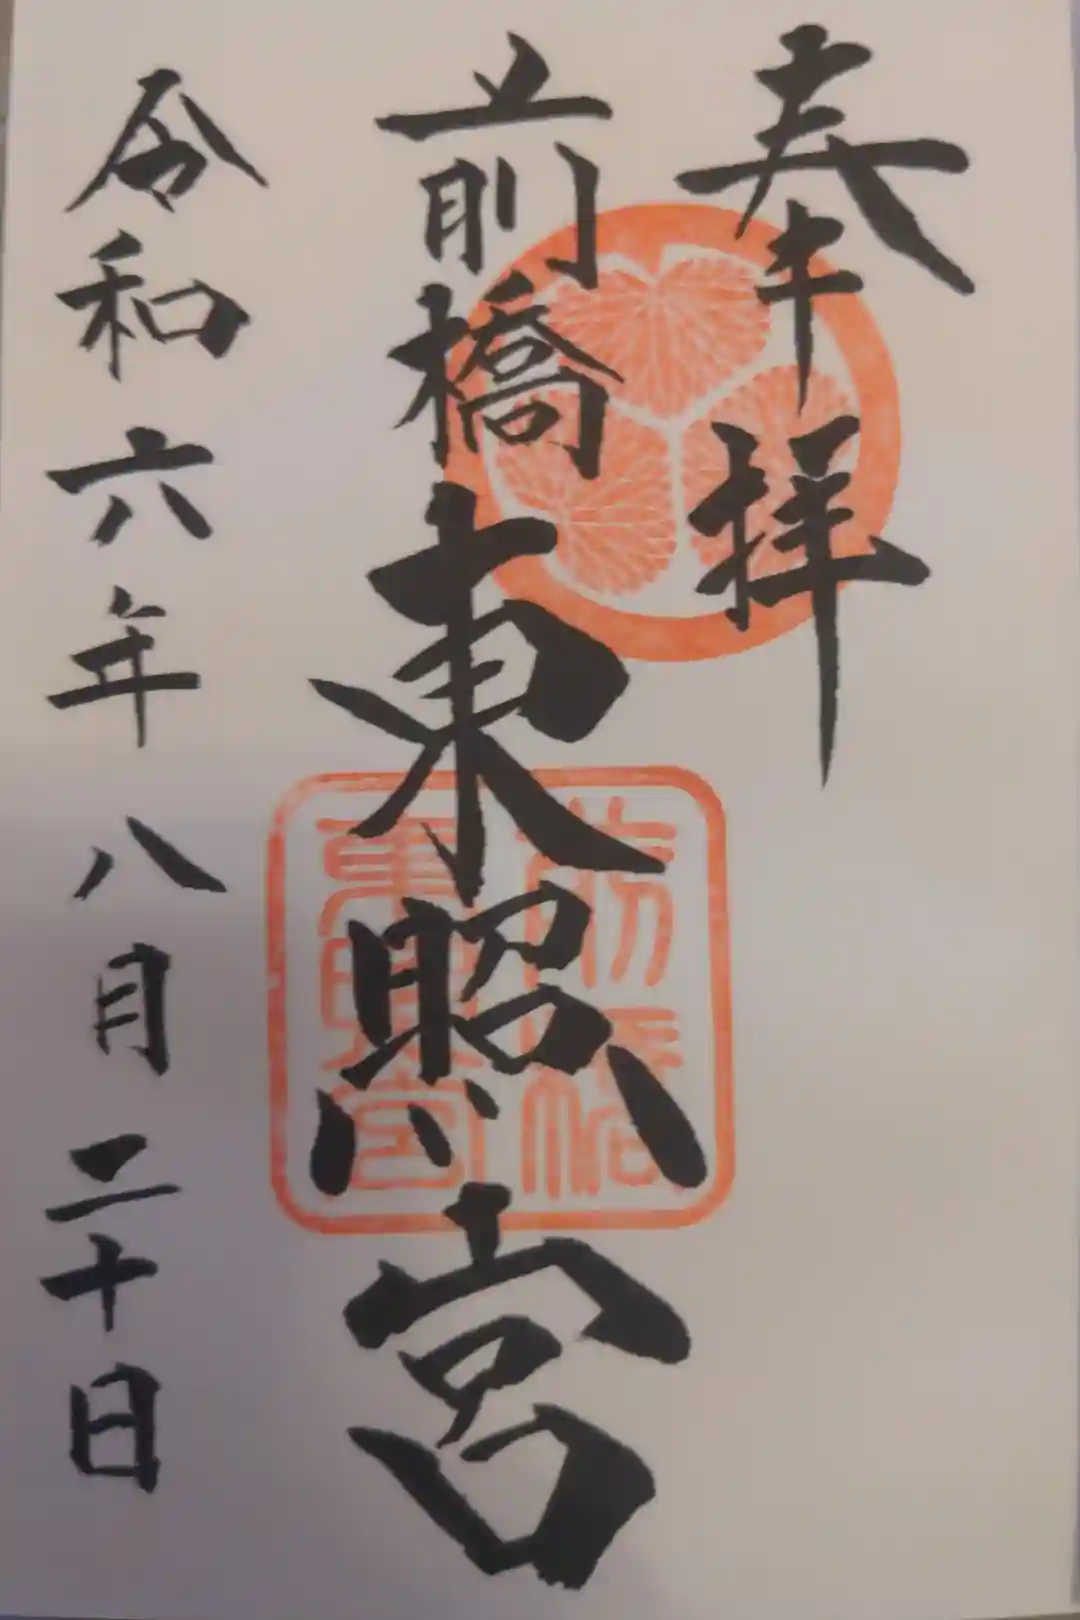 奉拝
前橋東照宮
令和六年八月二十日
前橋
東照宮